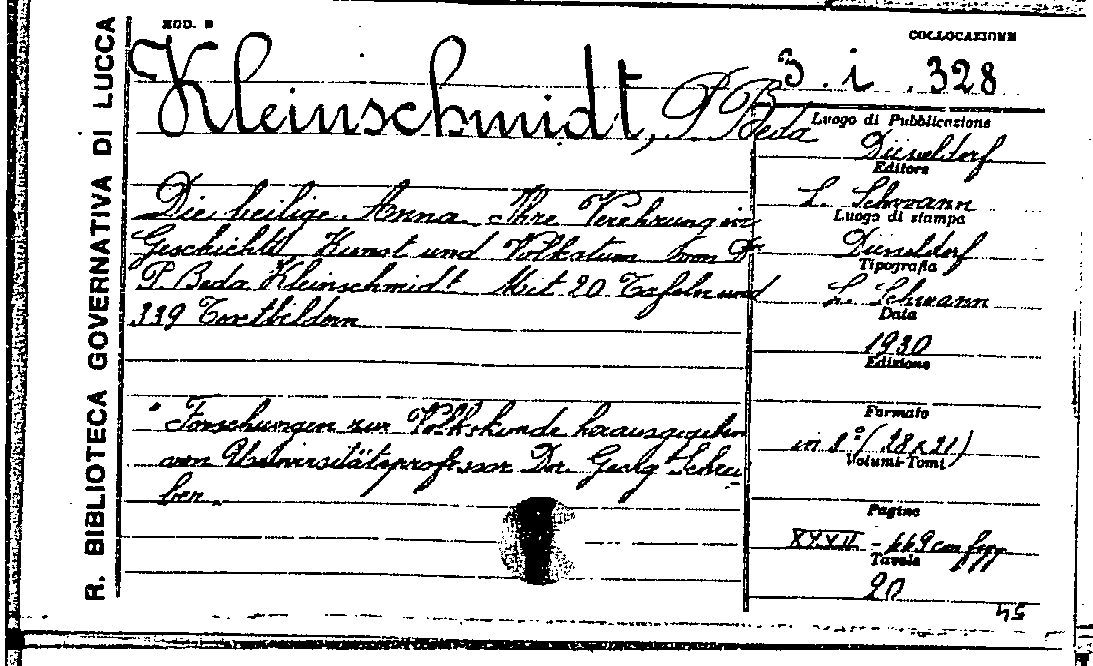 R. BIBLIOTECA GOVERNATIVA DI LUCCA
MOD. B
COLLOCAZIONE
3. i. 328
Kleinschmidt, P Beda
Die heilige Anna Ihre Verehrung in
Geschichte Kunst und Volkstum von Dr
P Beda Kleinschmidt Mit 20 Tafeln und
339 Textbildern
" Forschungen zur Volkskunde herausgegeben
von Universitätsprofessor Dr. Georg Schrei
ber.
Luogo di Pubblicazione
Düsseldorf
Editore
L. Schwann
Luogo di stampa
Düsseldorf
Tipografia
L. Schwann
Data
1930
Edizione
Formato
in 8° (28x21)
Volumi-Tomi
Pagine
XXXII - 449 con figg
Tavole
20
54